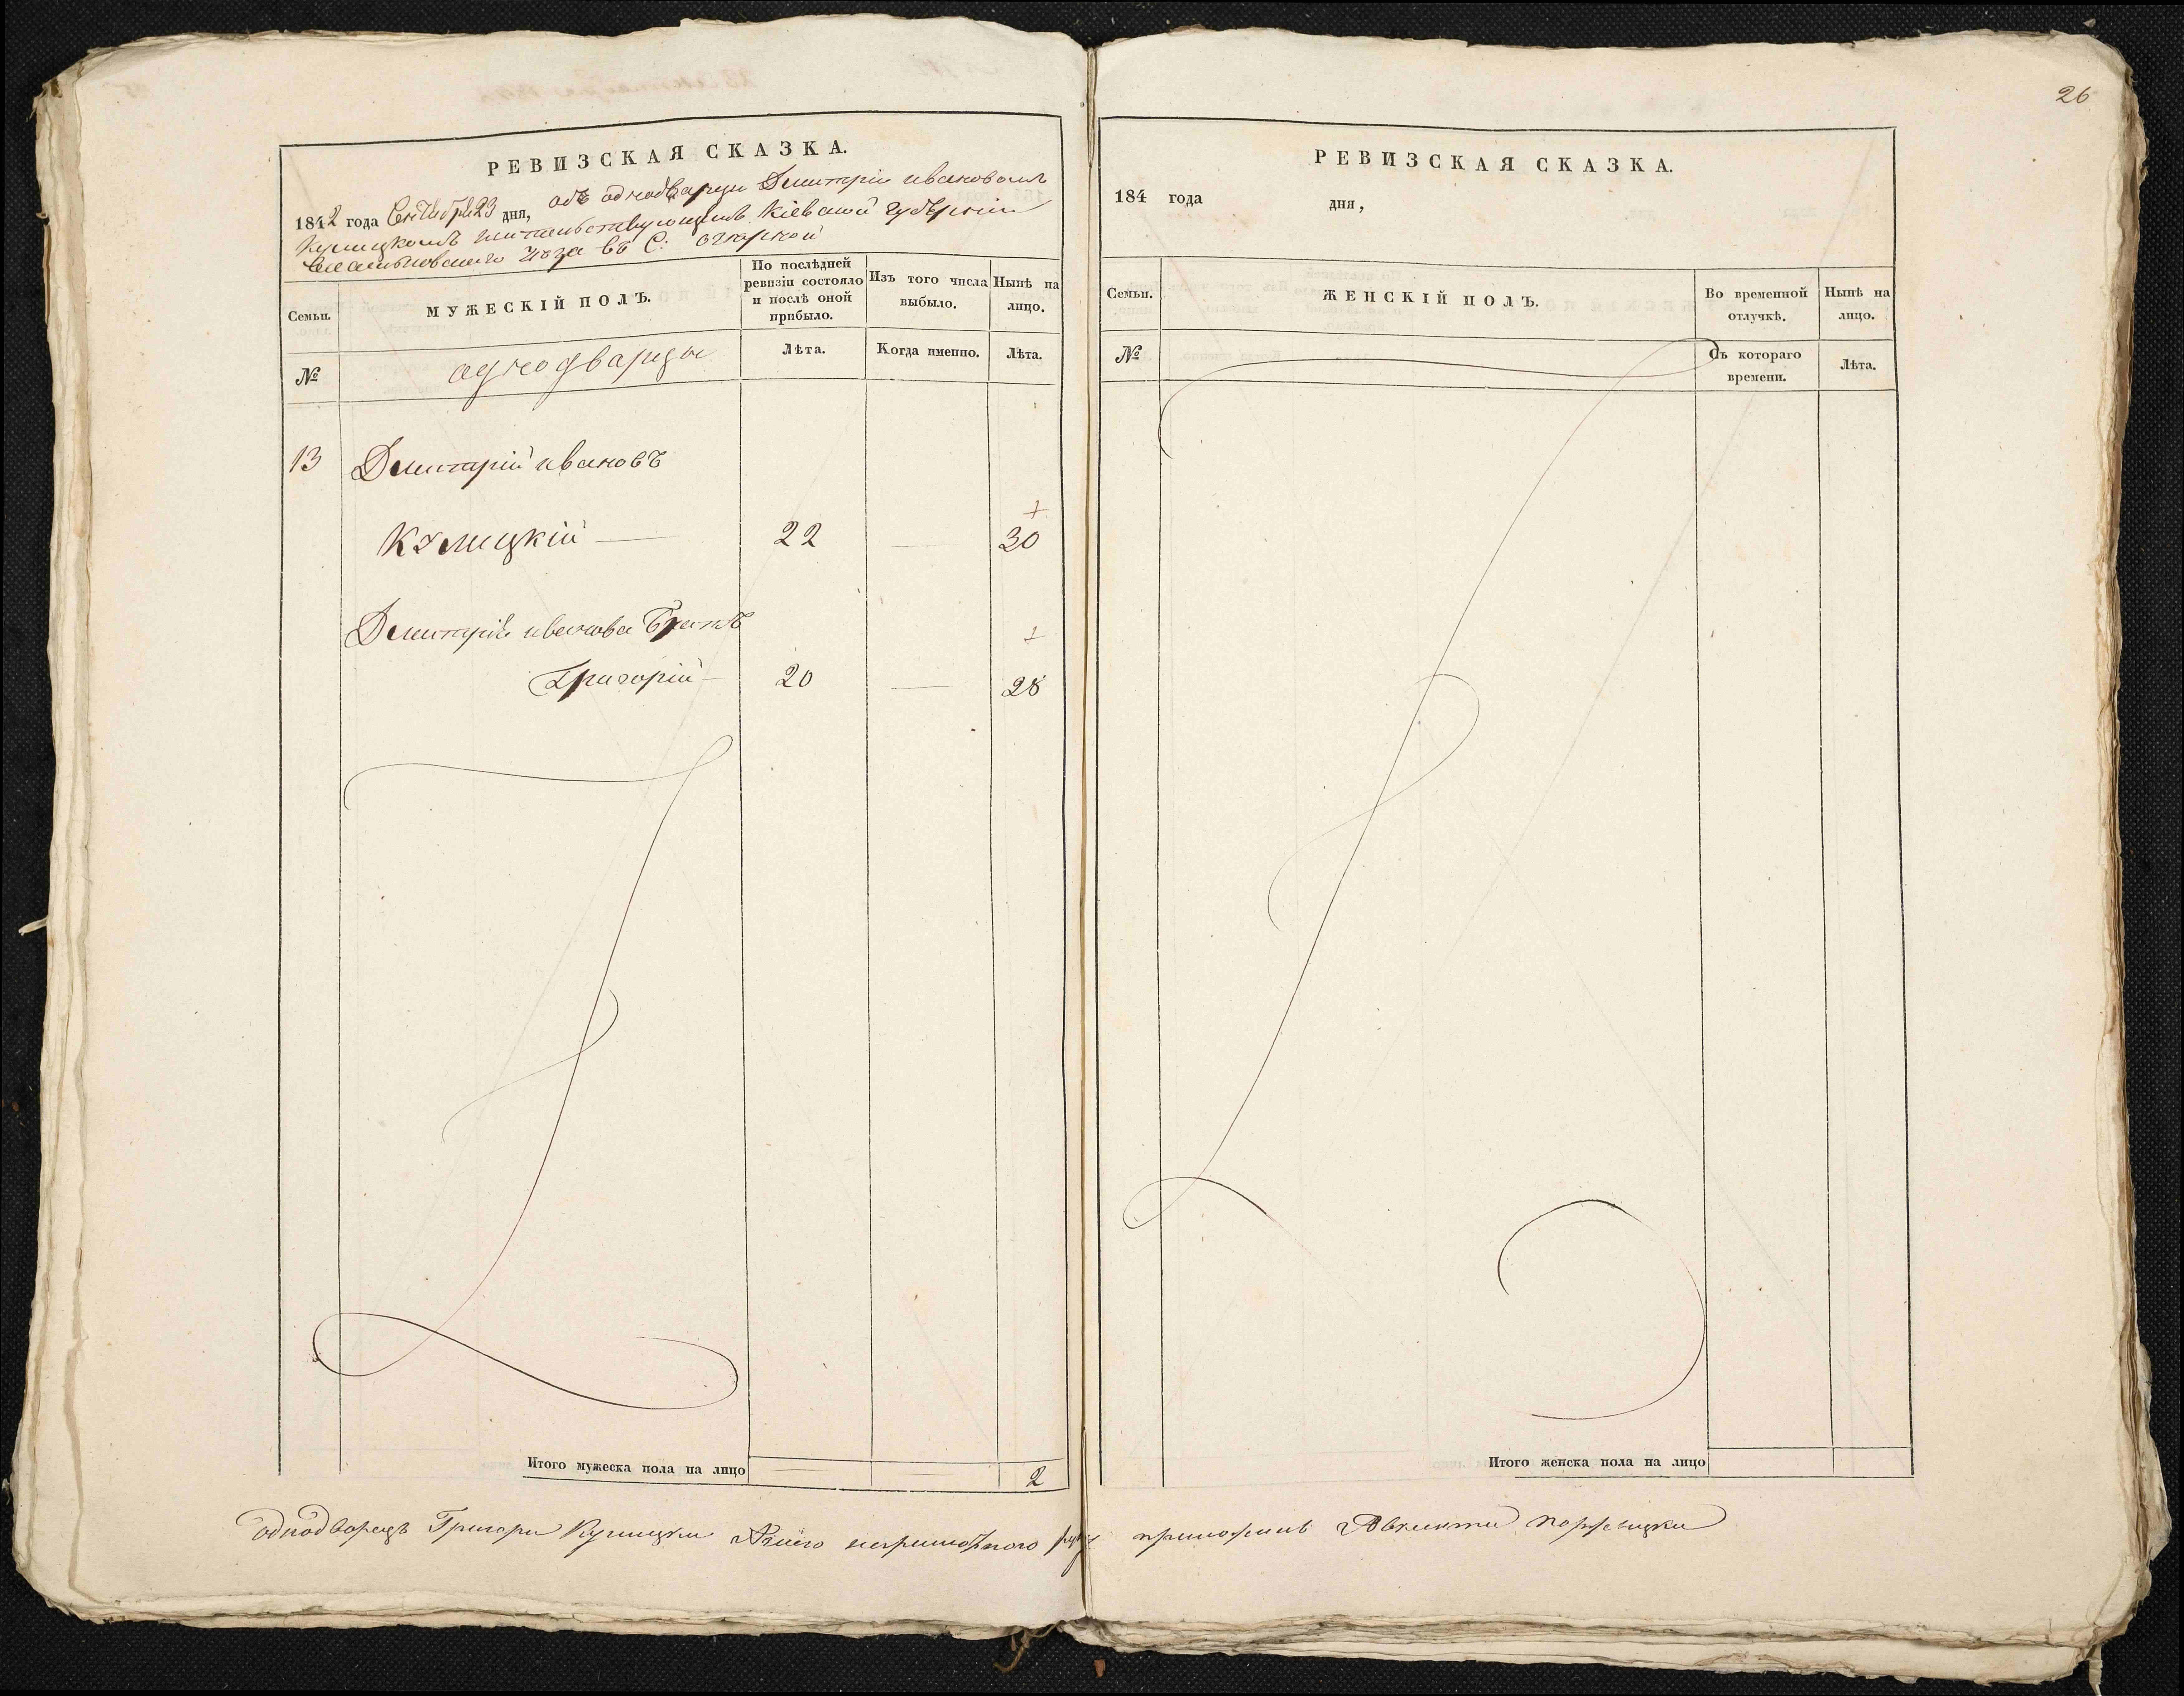 26
РЕВИЗСКАЯ СКАЗКА.
1842 года Сентября 23 дня, объ однодварци Дмитріи ивановомъ
жительствующимъ Кіевской Губерніи
уѣзда въ С:
Семьи.
МУЖЕСКІЙ ПОЛЪ.
По послѣдней ревизіи состояло и послѣ оной прибыло.
Изъ того числа выбыло.
Нынѣ на лицо.
№
однодварцы
Лѣта.
Когда именно.
Лѣта.
13 Дмитрій ивановъ
Кулицкій — 22 — 30
Дмитрія иванова Братъ
Григорій — 20 — 28
Итого мужеска пола на лицо 2
однодворецъ Григори
РЕВИЗСКАЯ СКАЗКА.
184 года дня,
Семьи.
ЖЕНСКІЙ ПОЛЪ.
Во временной отлучкѣ.
Нынѣ на лицо.
№
Съ котораго времени.
Лѣта.
Итого женска пола на лицо